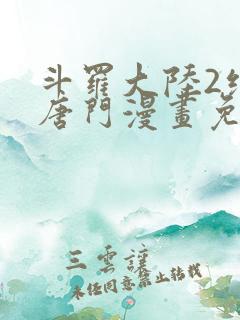 斗羅大陸2
唐門漫畫免
三雲謹
未任同意禁止转载